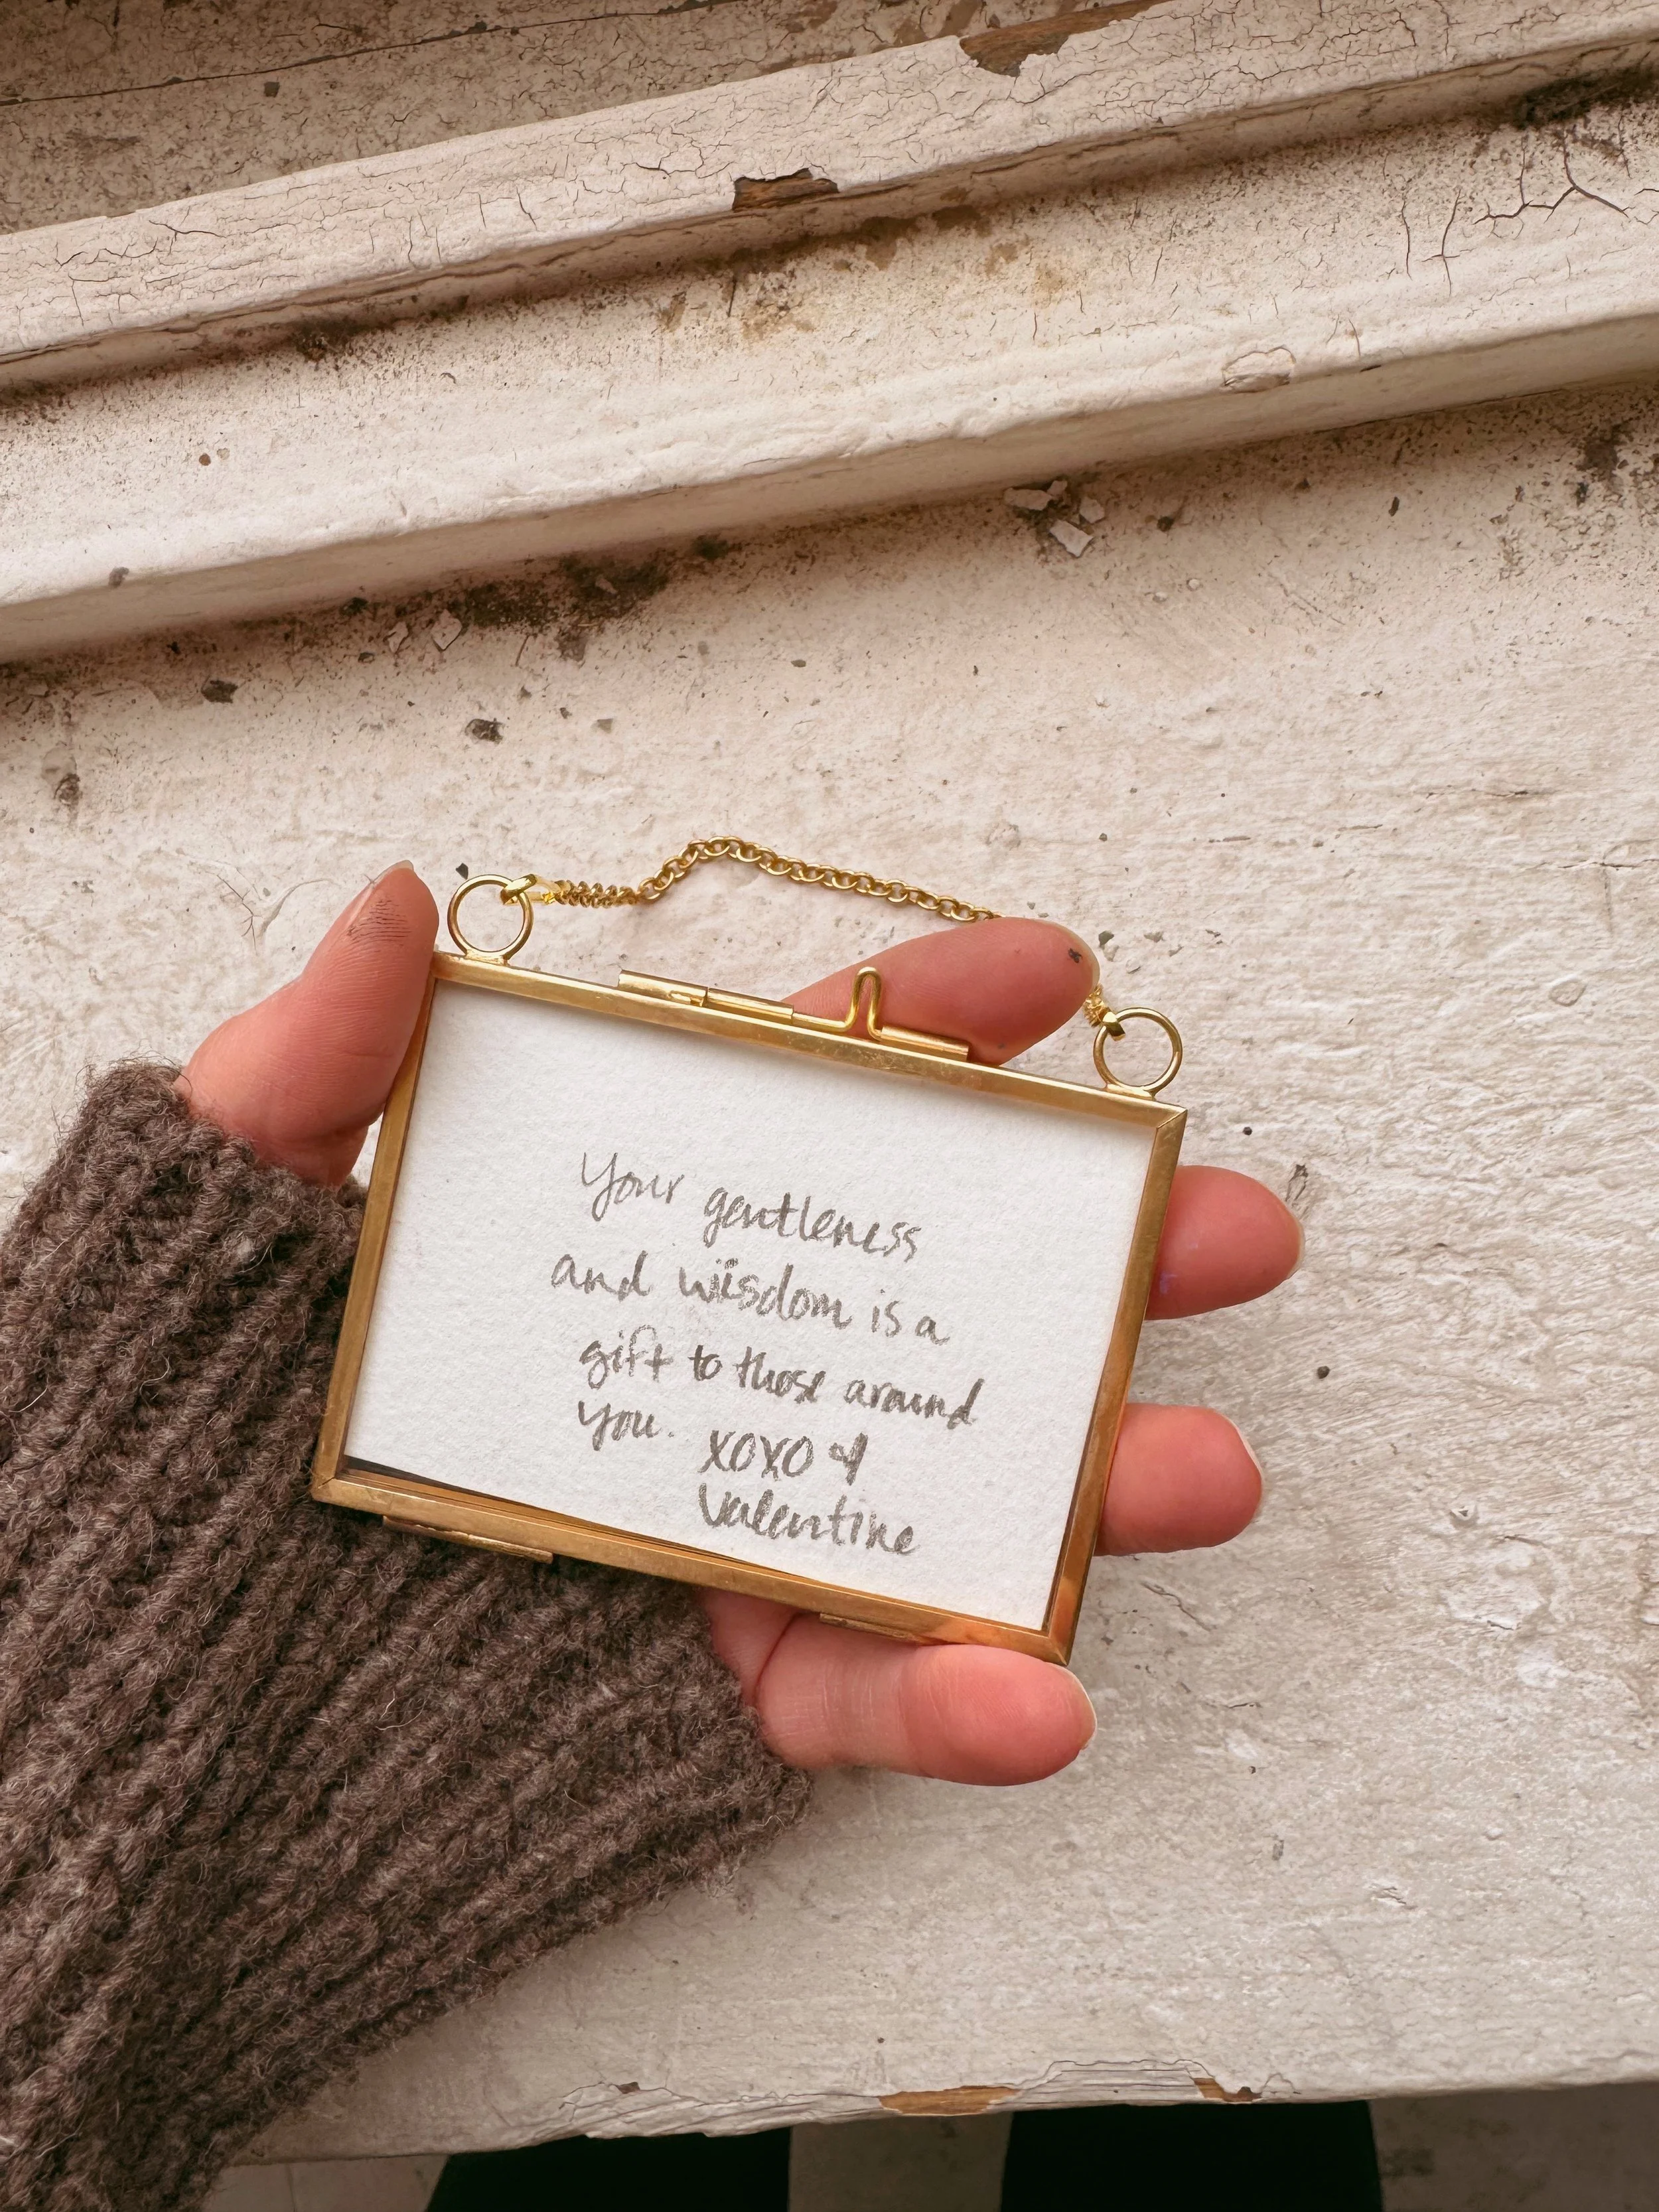 Your gentleness
and wisdom is a
gift to those around
you. xoxo
Valentine